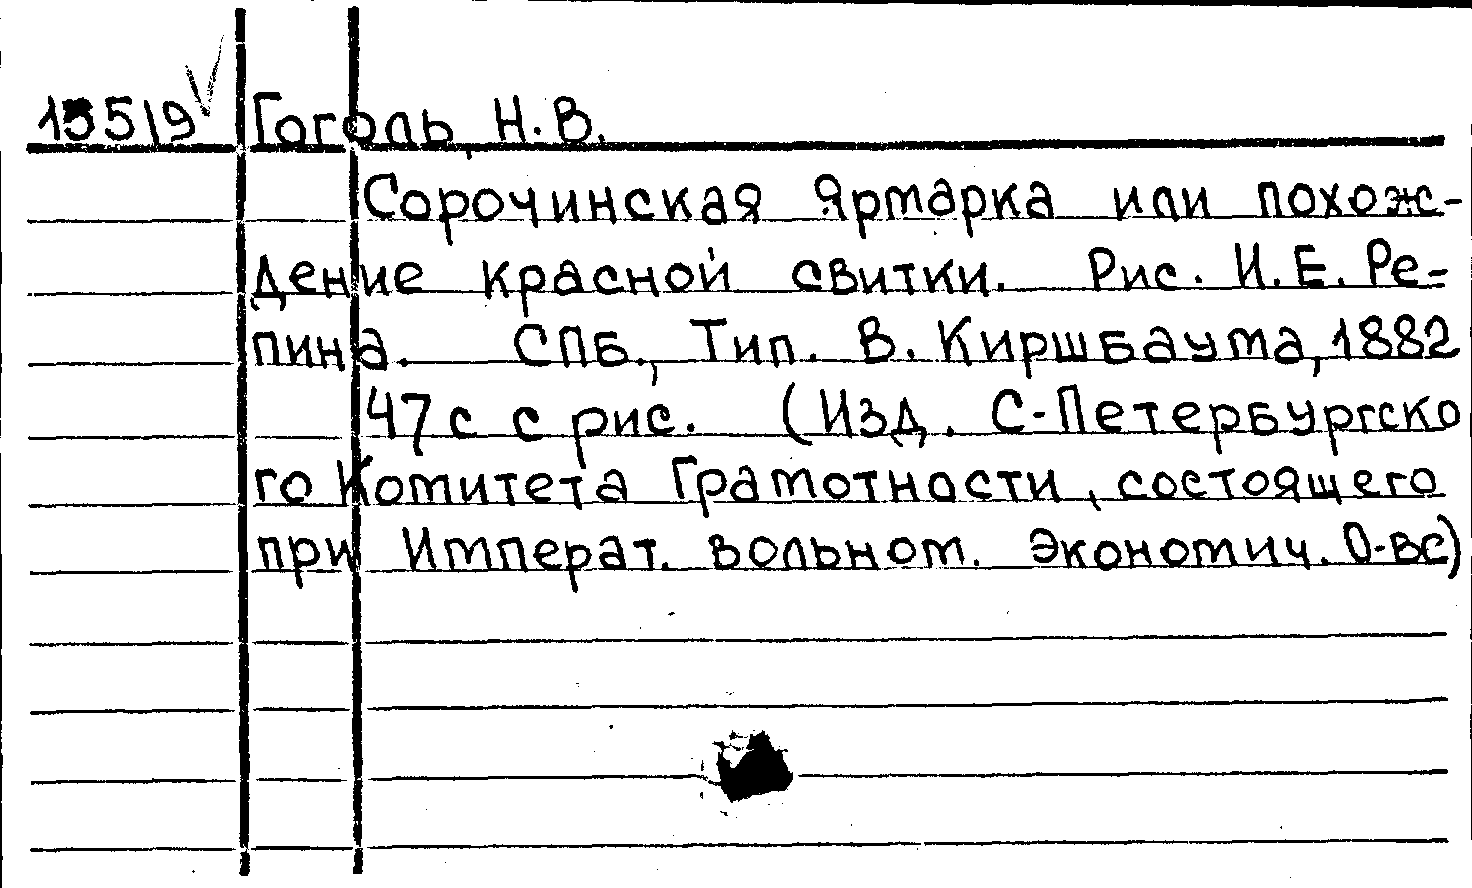 13519 Гоголь, Н.В.
Сорочинская Ярмарка или похож-
дение красной свитки. Рис. И.Е. Ре-
пина. СПБ., Тип. В. Киршбаума, 1882
47 с с рис. (Изд. С-Петербургско
го Комитета Грамотности, состоящего
при Императ. вольном. Экономич. О-ве)